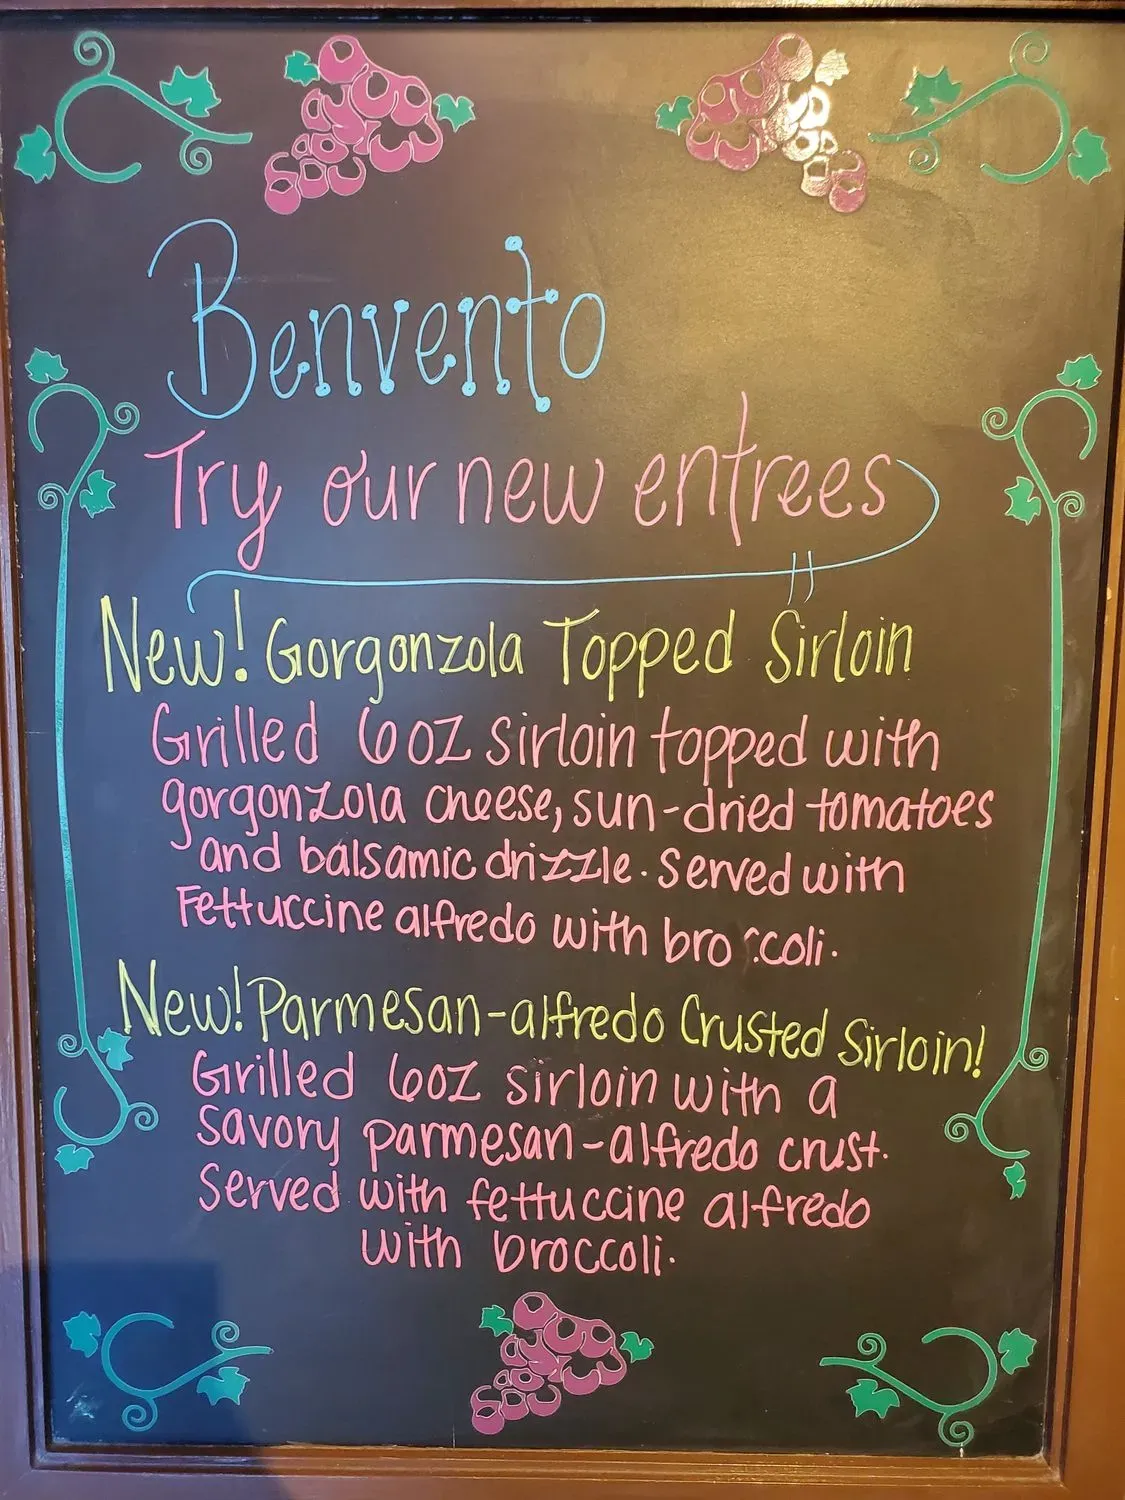 Benvento
Try our new entrees
New! Gorgonzola Topped Sirloin
Grilled 6oz sirloin topped with
gorgonzola cheese, sun-dried tomatoes
and balsamic drizzle. Served with
Fettuccine alfredo with broccoli.
New! Parmesan-alfredo Crusted Sirloin!
Grilled 6oz sirloin with a
savory parmesan-alfredo crust.
Served with fettuccine alfredo
with broccoli.